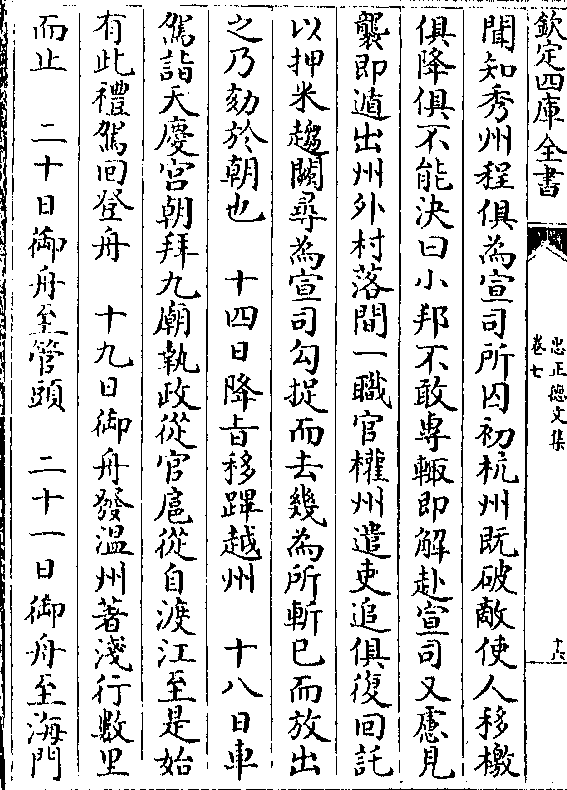 欽定四庫全書
忠正德文集
卷七
十六
聞知秀州程俱為宣司所囚初杭州既破敵使人移檄
俱降俱不能決曰小邦不敢專輙即解赴宣司又慮見
襲即遁出州外村落間一職官權州遣吏追俱復回託
以押米趨闕尋為宣司勾捉而去幾為所斬已而放出
之乃劾於朝也　十四日降旨移蹕越州　十八日車
駕詣天慶宮朝拜九廟執政從官扈從自渡江至是始
有此禮駕回登舟　十九日御舟發溫州著淺行數里
而止　二十日御舟至管頭　二十一日御舟至海門